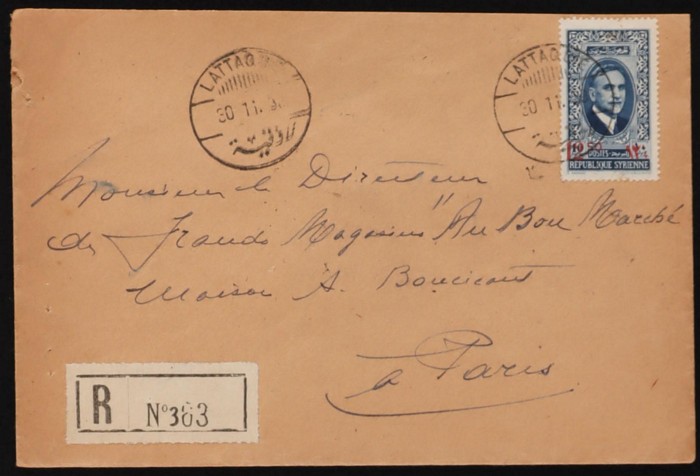 LATTAQ
30 11.
LATTAQ
30 11.
10
POSTES
RÉPUBLIQUE SYRIENNE
Monsieur le Directeur
des Grands Magasins "Au Bon Marché
Maison A. Boucicaut
à Paris
R N°363